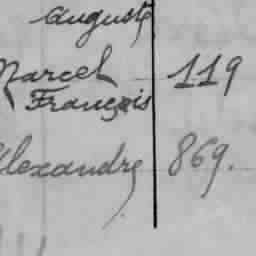 Auguste
Marcel 119
François
Alexandre 869.